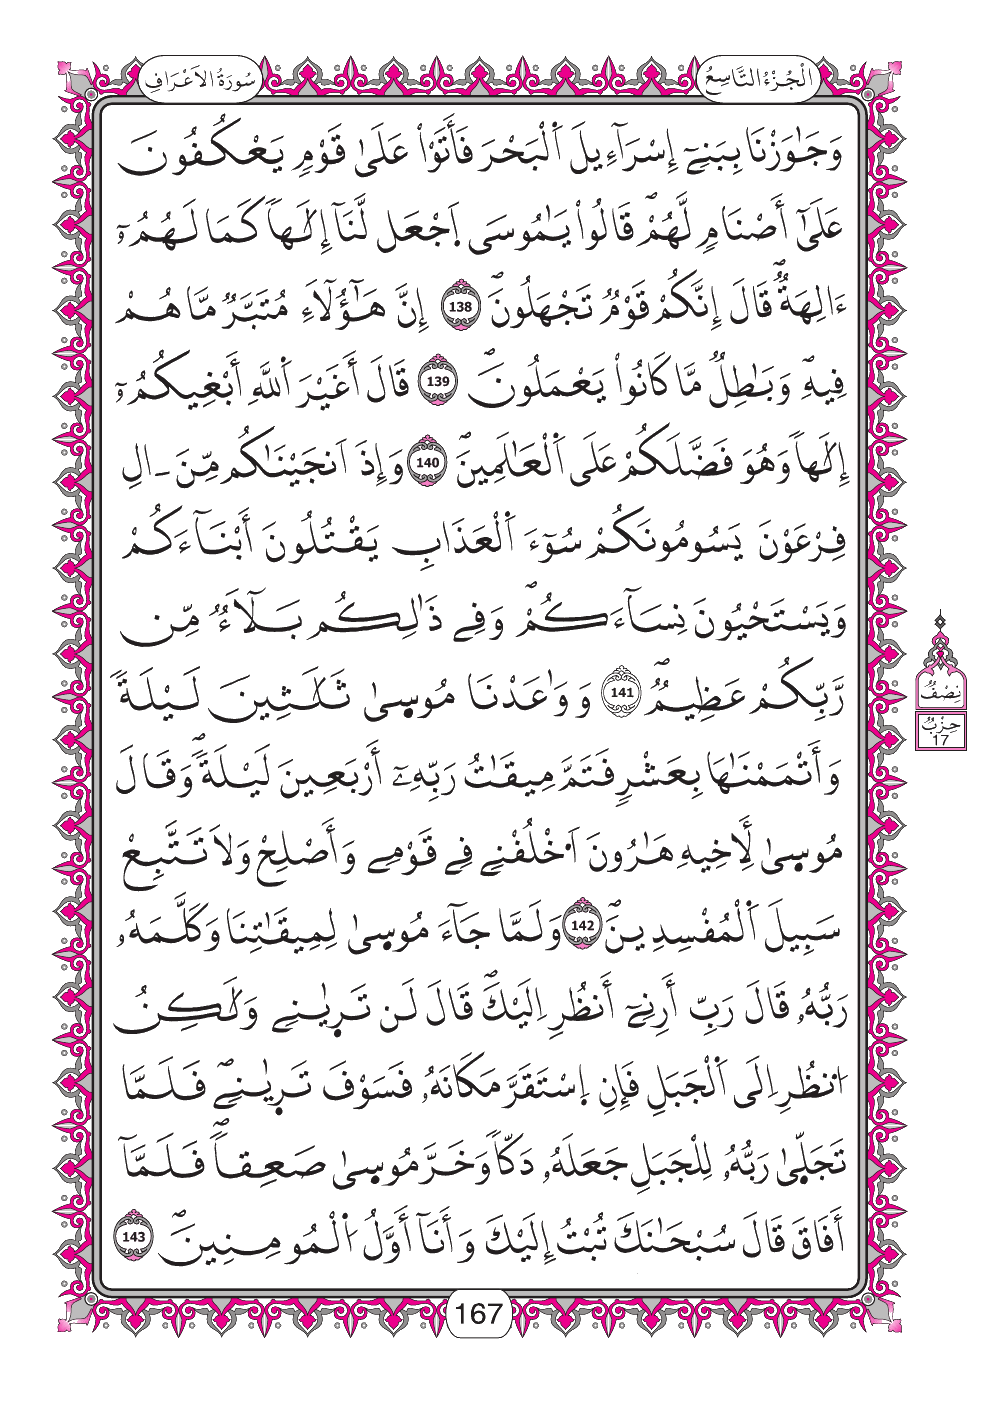 الْجُزْءُ التَّاسِعُ
سُورَةُ الْاَعْرَافِ
وَجَٰوَزْنَا بِبَنِےٓ إِسْرَآءِيلَ اَ۬لْبَحْرَ فَأَتَوْاْ عَلَىٰ قَوْمٖ يَعْكُفُونَ
عَلَىٰٓ أَصْنَامٖ لَّهُمْۖ قَالُواْ يَٰمُوسَى اَ۪جْعَل لَّنَآ إِلَٰهاٗ كَمَا لَهُمُۥٓ
ءَالِهَةٞۖ قَالَ إِنَّكُمْ قَوْمٞ تَجْهَلُونَۖ 138 إِنَّ هَٰٓؤُلَآءِ مُتَبَّرٞ مَّا هُمْ
فِيهِۖ وَبَٰطِلٞ مَّا كَانُواْ يَعْمَلُونَۖ 139 قَالَ أَغَيْرَ اَ۬للَّهِ أَبْغِيكُمُۥٓ
إِلَٰهاٗ وَهُوَ فَضَّلَكُمْ عَلَى اَ۬لْعَٰلَمِينَۖ 140 وَإِذَ اَنجَيْنَٰكُم مِّنَ ـ اٰلِ
فِرْعَوْنَ يَسُومُونَكُمْ سُوٓءَ اَ۬لْعَذَابِ يَقْتُلُونَ أَبْنَآءَكُمْ
وَيَسْتَحْيُونَ نِسَآءَكُمْۖ وَفِے ذَٰلِكُم بَلَآءٞ مِّن
رَّبِّكُمْ عَظِيمٞۖ 141 وَوَٰعَدْنَا مُوس۪ىٰ ثَلَٰثِينَ لَيْلَةٗ
وَأَتْمَمْنَٰهَا بِعَشْرٖ فَتَمَّ مِيقَٰتُ رَبِّهِۦٓ أَرْبَعِينَ لَيْلَةٗۖ وَقَالَ
مُوس۪ىٰ لِأَخِيهِ هَٰرُونَ اَ۟خْلُفْنِے فِے قَوْمِے وَأَصْلِحْ وَلَا تَتَّبِعْ
سَبِيلَ اَ۬لْمُفْسِدِينَۖ 142 وَلَمَّا جَآءَ مُوس۪ىٰ لِمِيقَٰتِنَا وَكَلَّمَهُۥ
رَبُّهُۥ قَالَ رَبِّ أَرِنِےٓ أَنظُرِ اِلَيْكَۖ قَالَ لَن تَر۪ىٰنِے وَلَٰكِنُ
اُ۟نظُرِ اِلَى اَ۬لْجَبَلِ فَإِنِ اِ۪سْتَقَرَّ مَكَانَهُۥ فَسَوْفَ تَر۪ىٰنِےۖ فَلَمَّا
تَجَلّ۪ىٰ رَبُّهُۥ لِلْجَبَلِ جَعَلَهُۥ دَكّاٗ وَخَرَّ مُوس۪ىٰ صَعِقاٗۖ فَلَمَّآ
أَفَاقَ قَالَ سُبْحَٰنَكَ تُبْتُ إِلَيْكَ وَأَنَآ أَوَّلُ اُ۬لْمُومِنِينَۖ 143
نِصْفُ
حِزْبُ
17
167